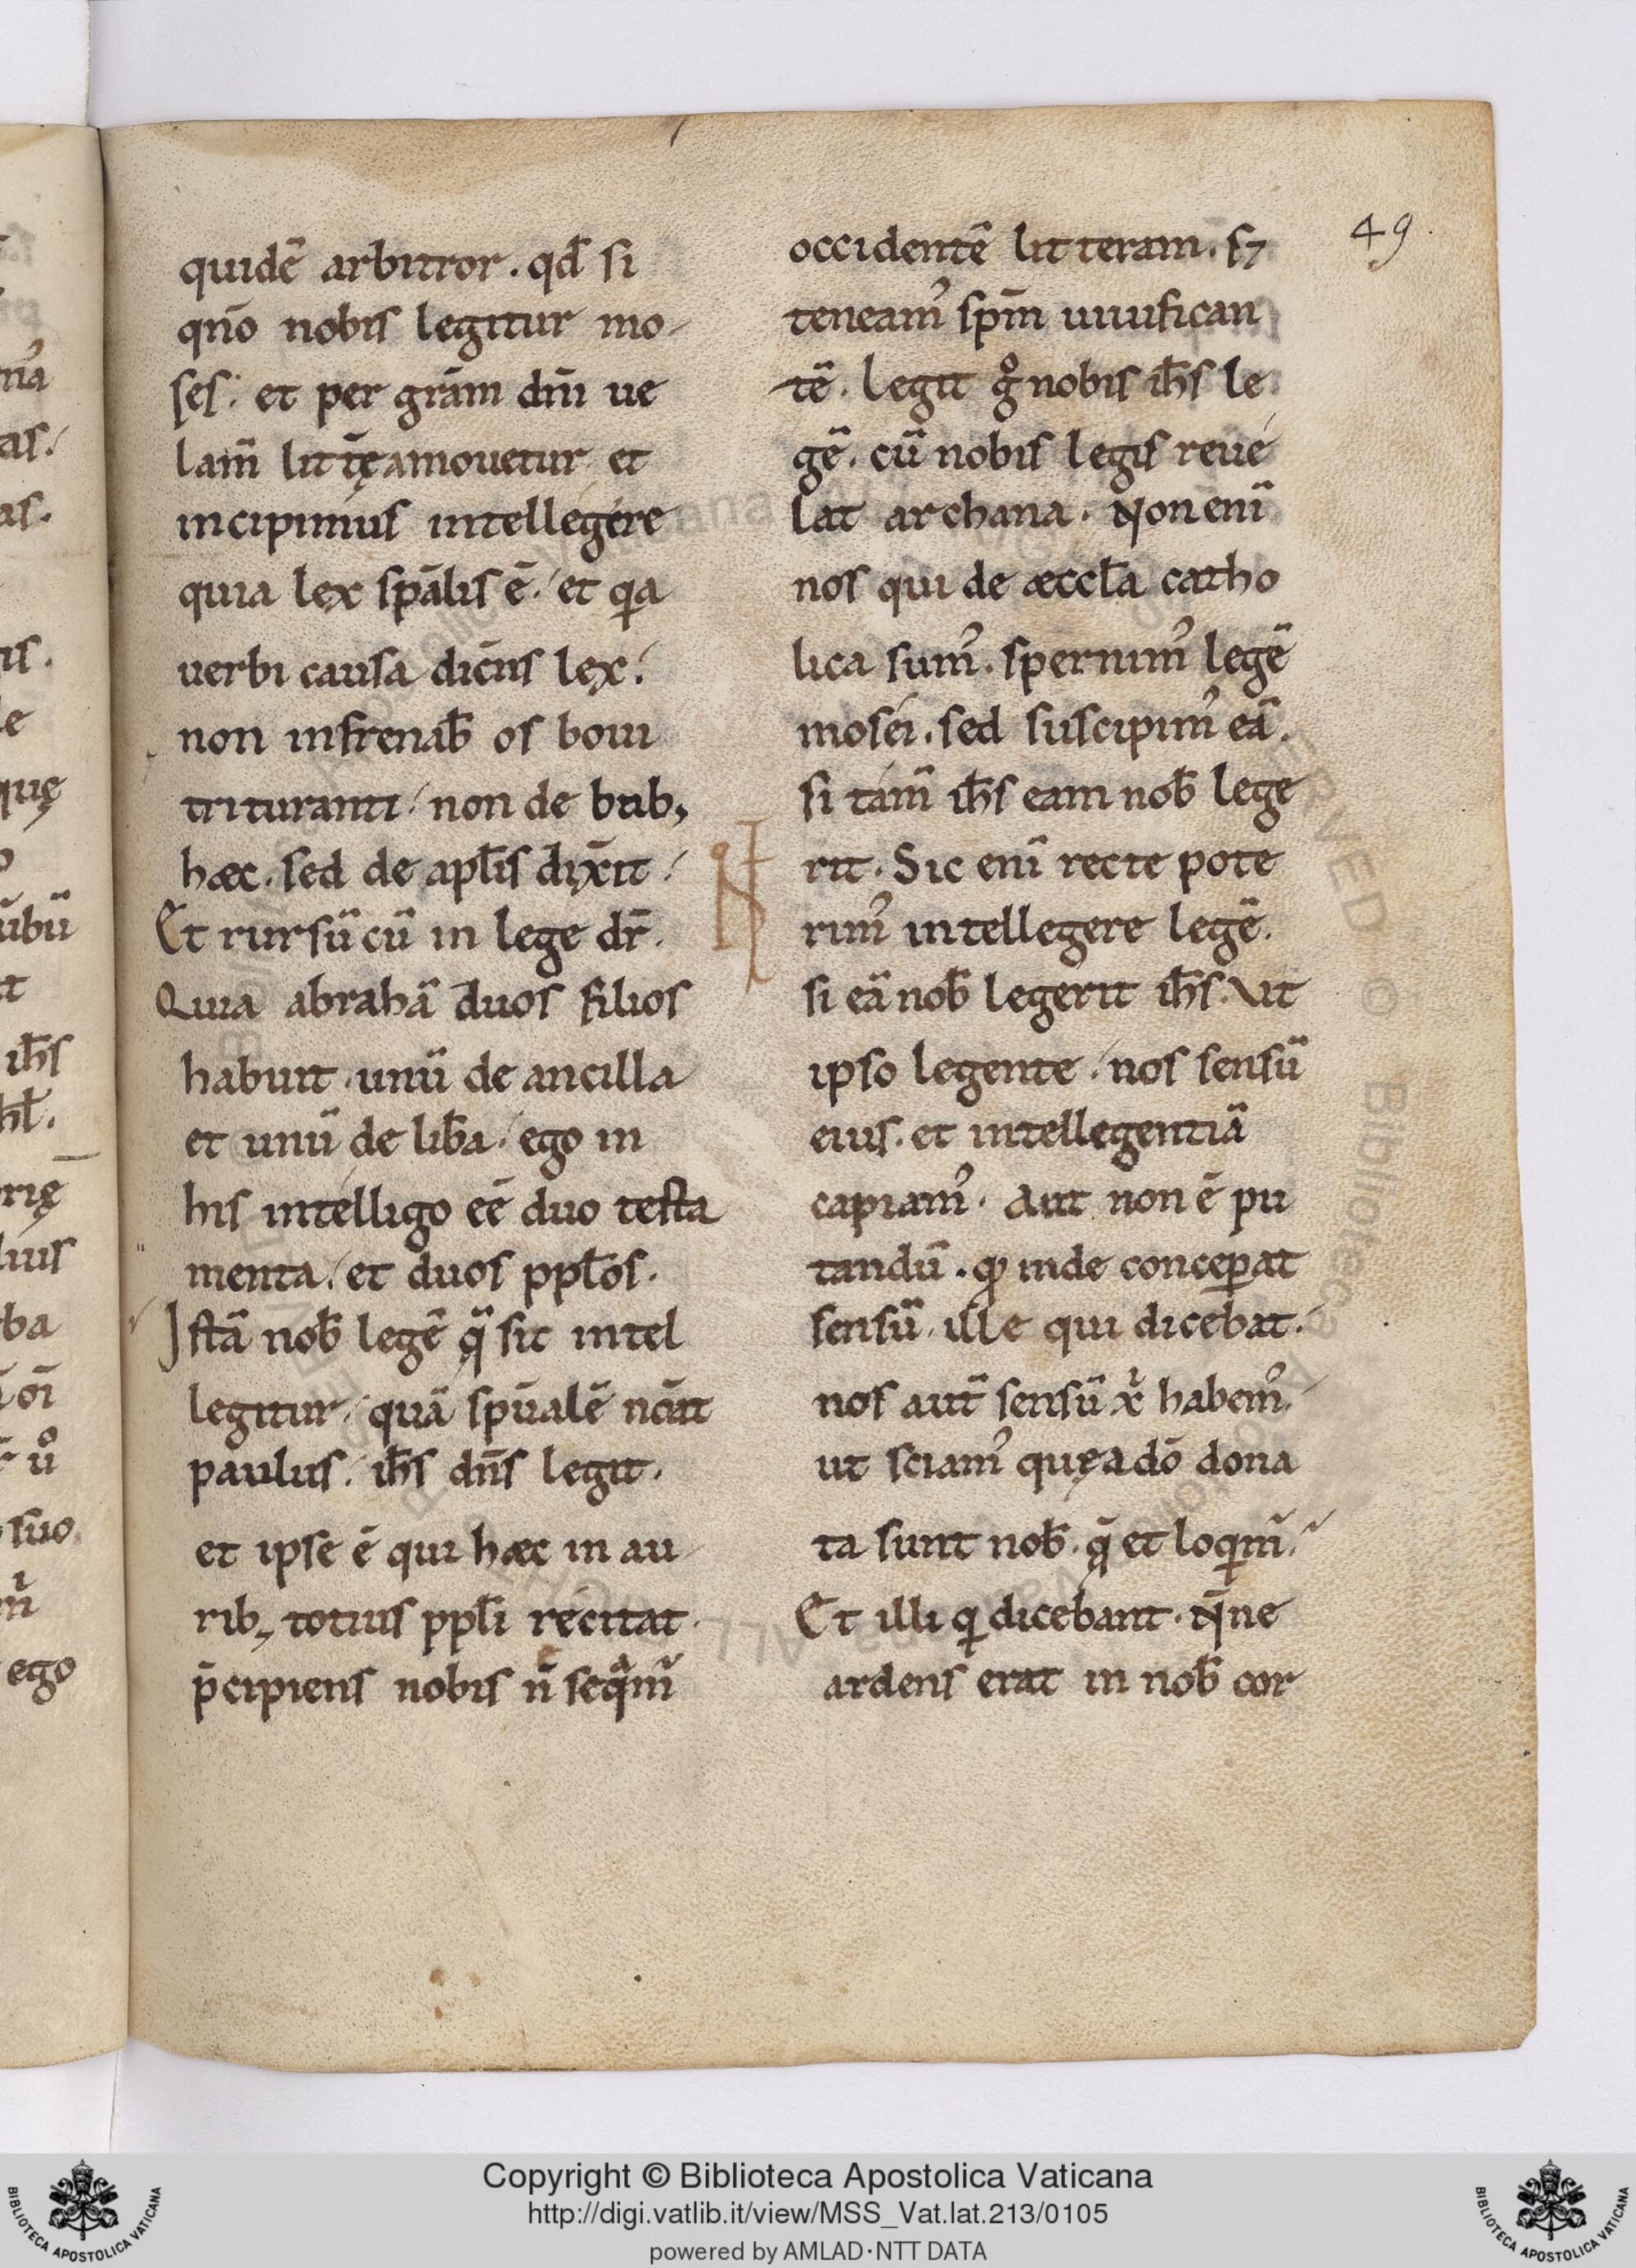 quidē arbitror. qd̄ si
qn̄o nobis legitur mo-
ses. et per grām dn̄i ue
lam̄ litt̄ę amouetur et
incipimus intellegere
quia lex sp̄alis ē. et qa
uerbi causa dicēns lex.
non infrenab̄ os boui
trituranti. non de bub;
hæc. sed de apl̄is dix̄it.
Et rursū cū in lege dr̄.
Quia abrahā duos filios
habuit. unū de ancilla
et unū de lib̄a. ego in
his intelligo eē duo testa
menta. et duos ppl̄os.
Istā nob̄ legē q̄ sic intel
legitur. quā sp̄ualē nōīat
paulus. ih̄s dn̄s legit.
et ipse ē qui hæc in au-
rib; totius ppl̄i recitat.
p̄cipiens nobis n̄ seqᵃm̄
occidentē litteram. s;
teneam᾽ sp̄m uiuifican
tē. legit gº nobis ih̄s le
gē. cū nobis legis reue
lat archana. Non enī
nos qui de æccl̄a catho
lica sum᾽. spernim᾽ legē
mosei. sed suscipim᾽ eā.
si tam̄ ih̄s eam nob̄ lege
rit. Sic enī recte pote
rim᾽ intellegere legē.
si eā nob̄ legerit ih̄s. Ut
ipso legente. nos sensū
eius. et intellegentiā
capiam᾽. Aut non ē pu
tandū. qđ inde conceꝑat
sensū. ille qui dicebat.
nos aut̄ sensū xⁱ habem᾽.
ut sciam᾽ quę a dō dona
ta sunt nob̄. q̄ et loqim̄.
Et illi qi dicebant. Nn̄e
ardens erat in nob̄ cor
49.
Copyright © Biblioteca Apostolica Vaticana
http://digi.vatlib.it/view/MSS_Vat.lat.213/0105
powered by AMLAD·NTT DATA
BIBLIOTECA APOSTOLICA VATICANA
BIBLIOTECA APOSTOLICA VATICANA